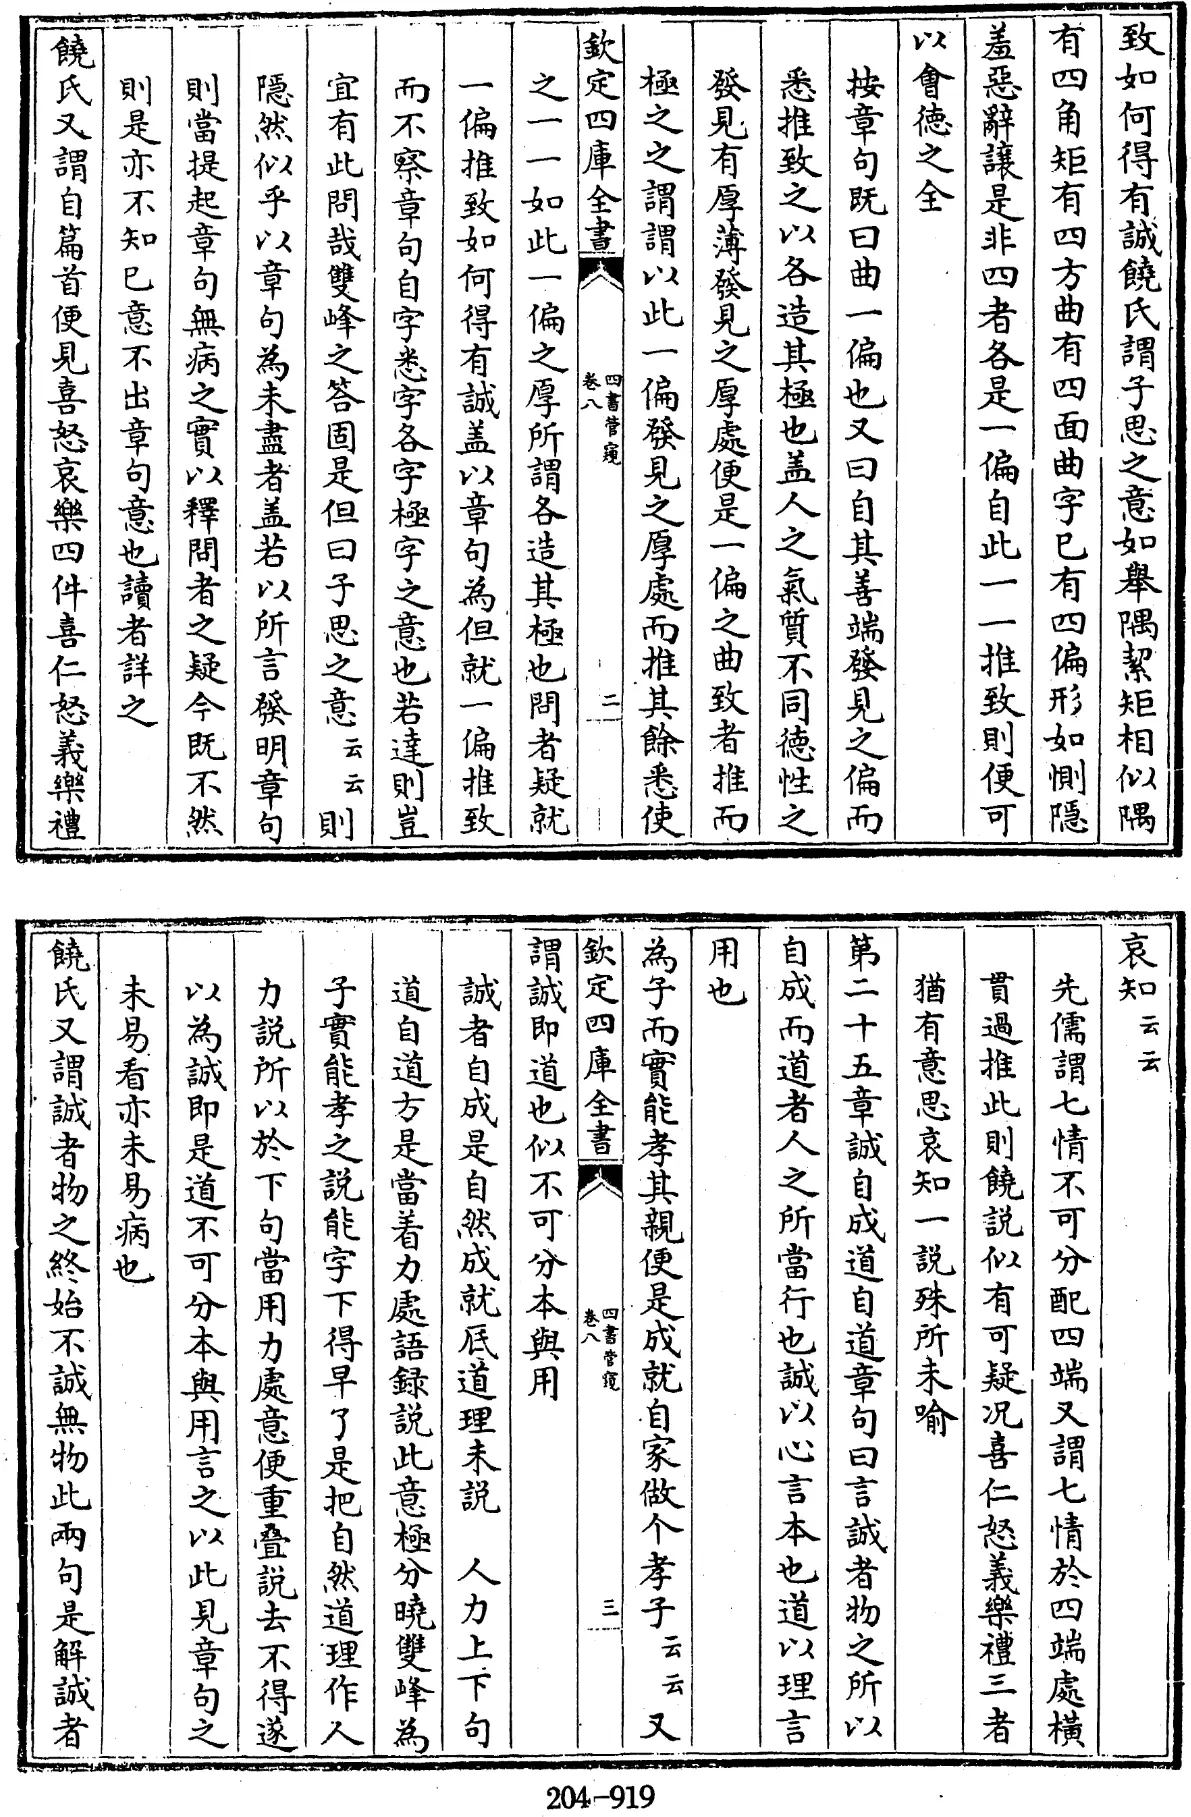 致如何得有誠饒氏謂子思之意如舉隅絜矩相似隅
有四角矩有四方曲有四面曲字已有四偏形如惻隱
羞惡辭讓是非四者各是一偏自此一一推致則便可
以會德之全
按章句既曰曲一偏也又曰自其善端發見之偏而
悉推致之以各造其極也盖人之氣質不同德性之
發見有厚薄發見之厚處便是一偏之曲致者推而
極之之謂謂以此一偏發見之厚處而推其餘悉使
欽定四庫全書
四書管窺
卷八
二
之一一如此一偏之厚所謂各造其極也問者疑就
一偏推致如何得有誠盖以章句為但就一偏推致
而不察章句自字悉字各字極字之意也若達則豈
宜有此問哉雙峰之答固是但曰子思之意云云則
隱然似乎以章句為未盡者盖若以所言發明章句
則當提起章句無病之實以釋問者之疑今既不然
則是亦不知已意不出章句意也讀者詳之
饒氏又謂自篇首便見喜怒哀樂四件喜仁怒義樂禮
哀知云云
先儒謂七情不可分配四端又謂七情於四端處橫
貫過推此則饒説似有可疑况喜仁怒義樂禮三者
猶有意思哀知一説殊所未喻
第二十五章誠自成道自道章句曰言誠者物之所以
自成而道者人之所當行也誠以心言本也道以理言
用也
為子而實能孝其親便是成就自家做个孝子云云又
欽定四庫全書
四書管窺
卷八
三
謂誠即道也似不可分本與用
誠者自成是自然成就底道理未説 人力上下句
道自道方是當着力處語録説此意極分曉雙峰為
子實能孝之説能字下得早了是把自然道理作人
力説所以於下句當用力處意便重叠説去不得遂
以為誠即是道不可分本與用言之以此見章句之
未易看亦未易病也
饒氏又謂誠者物之終始不誠無物此兩句是解誠者
204-919